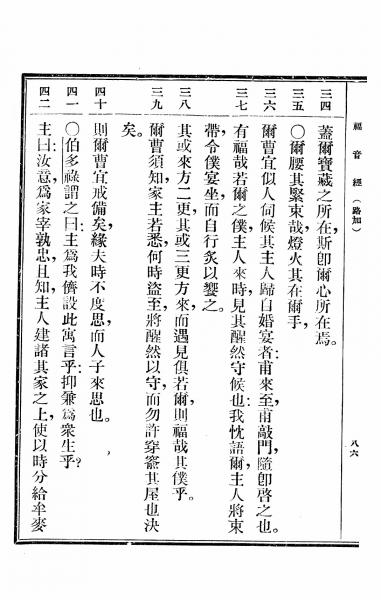 福音經（路加）
八六
三四 蓋爾寶藏之所在，斯卽爾心所在焉。
三五 〇爾腰其緊束哉，燈火其在爾手，
三六 爾曹宜似人伺候其主人歸自婚宴者：甫來至，甫敲門，隨卽啓之也。
三七 有福哉若爾之僕，主人來時，見其醒然守候也：我忱語爾，主人將束
帶，令僕宴坐，而自行炙以饗之。
三八 其或來方二更，其或三更方來，而遇見俱若爾，則福哉其僕乎。
三九 爾曹須知家主若悉何時盜至，將醒然以守，而勿許穿窬其屋也決
矣。
四十 則爾曹宜戒備矣，緣夫時不度思，而人子來思也。
四一 〇伯多祿謂之曰：主爲我儕設此寓言乎，抑兼爲衆生乎？
四二 主曰：汝意爲家宰孰忠，且知主人建諸其家之上，使以時分給牟麥